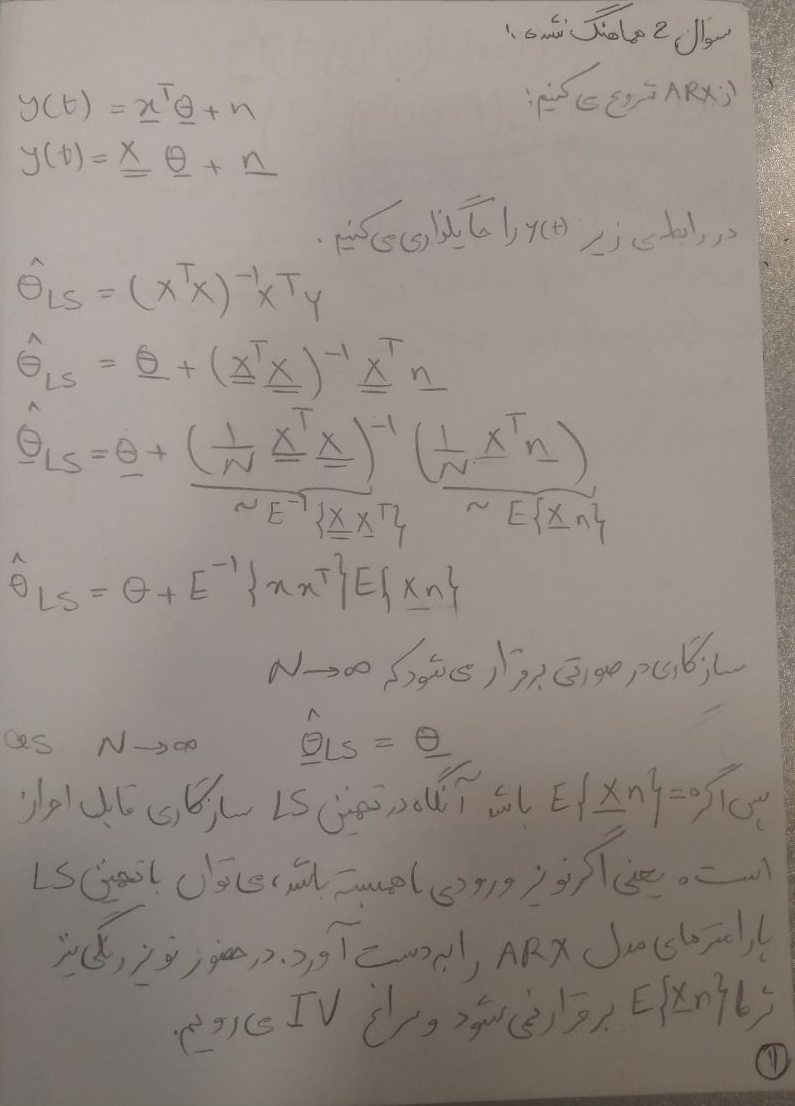 سوال 2 هماهنگ نشده :
از ARX شروع می کنیم:
y(t) = x^T θ + n
y(t) = X θ + n
در رابطه ی زیر y(t) را جایگذاری می کنیم .
θ̂_LS = (X^T X)^-1 X^T Y
θ̂_LS = θ + (X^T X)^-1 X^T n
θ̂_LS = θ + (1/N X^T X)^-1 (1/N X^T n)
~ E^-1{X X^T} ~ E{X n}
θ̂_LS = θ + E^-1{x x^T} E{X n}
سازگاری در صورتی برقرار می شود که N→∞
as N→∞ θ̂_LS = θ
پس اگر E{X n}=0 باشد آنگاه در تخمین LS سازگاری قابل احراز
است. یعنی اگر نویز ورودی ناهمبسته باشد، می توان با تخمین LS
پارامترهای مدل ARX را به دست آورد. در حضور نویز رنگی نیز
E{X n} برقرار نمی شود و سراغ IV می رویم.
1